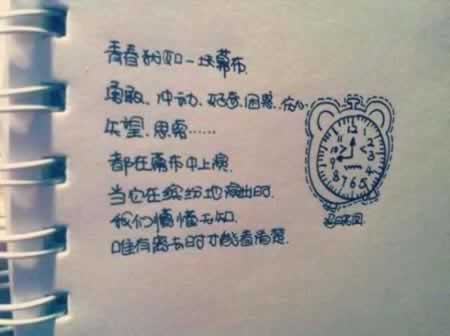 青春就如一块幕布.
勇敢、冲动、好奇、困惑、
失望、思索……
都在幕布中上演.
当它在缤纷地演出时.
我们懵懂无知.
唯有离去时才能看清楚.
12 1 2 3 4 5 6 7 8 9